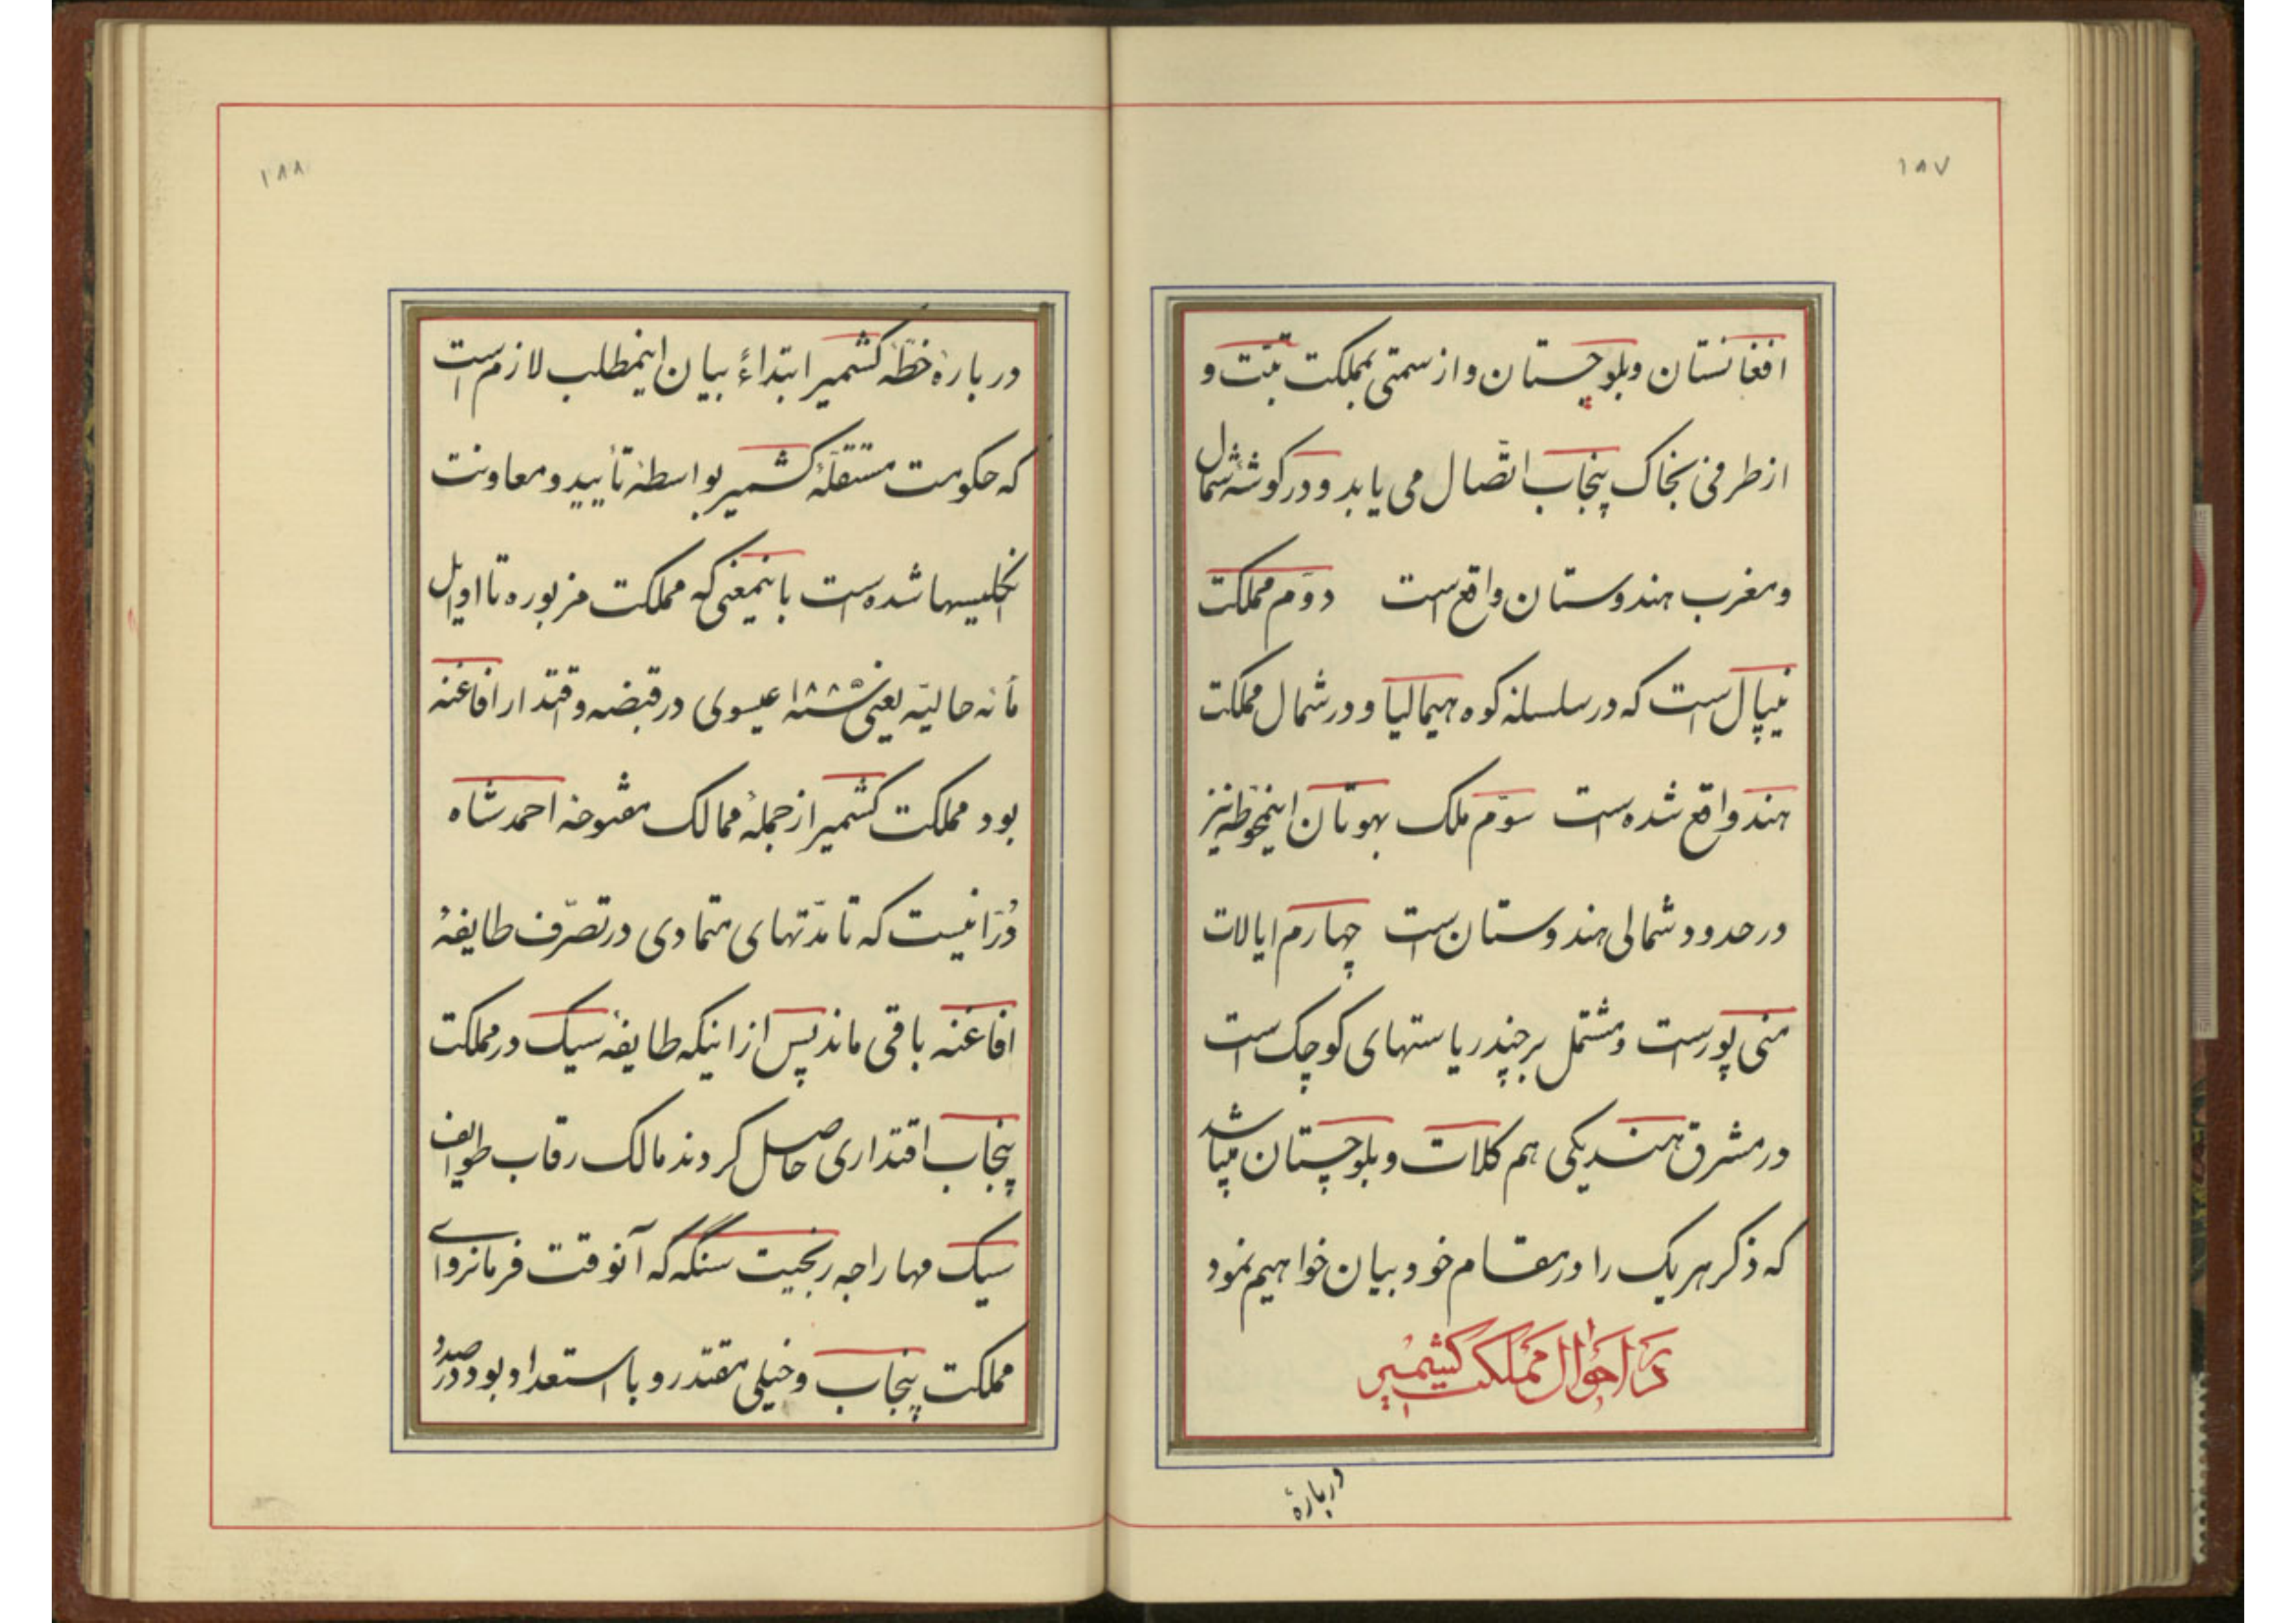 ۱۸۷
افغانستان و بلوچستان و از سمتی بمملکت تبّت و
از طرفی بخاک پنجاب اتّصال می یابد و در گوشهٔ شمال
و مغرب هندوستان واقع است دوّم مملکت
نیپال است که در سلسلهٔ کوه هیمالیا و در شمال مملکت
هند واقع شده است سوّم ملک بهوتان اینخطّه نیز
در حدود شمالی هندوستان است چهارم ایالات
منی پور است و مشتمل بر چند ریاستهای کوچک است
در مشرق هند یکی هم کلات و بلوچستان میباشد
که ذکر هر یک را در مقام خود بیان خواهیم نمود
در احوال مملکت کشمیر
دربارهٔ
۱۸۸
دربارهٔ خطّهٔ کشمیر ابتداءً بیان اینمطلب لازم است
که حکومت مستقلّهٔ کشمیر بواسطهٔ تأیید و معاونت
انگلیسها شده است باینمعنی که مملکت مزبوره تا اوایل
مأنه حالیّه یعنی عیسوی در قبضه و اقتدار افاغنه
بود مملکت کشمیر از جملهٔ ممالک مفتوحهٔ احمد شاه
دُرّانیست که تا مدّتهای متمادی در تصرّف طایفهٔ
افاغنه باقی ماند پس از اینکه طایفهٔ سیک در مملکت
پنجاب اقتداری حاصل کردند مالک رقاب طوایف
سیک مهاراجه رنجیت سنگه که آنوقت فرمانروای
مملکت پنجاب و خیلی مقتدر و با استعداد بود در صدد